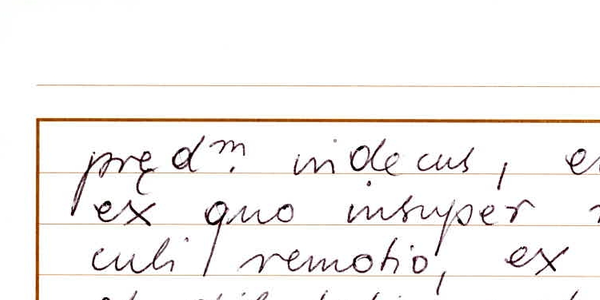 pręd^m. indecus,
ex quo insuper
culi remotio, ex